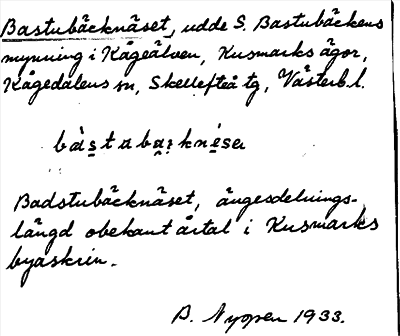 Bastubäcknäset, udde S. Bastubäckens
mynning i Kågeälven, Kusmarks ägor,
Kågedalens sn, Skellefteå tg, Västerb. l.
Badstubäcknäset, ängesdelnings-
längd obekant årtal i Kusmarks
byaskrin.
B. Nyopen 1933.